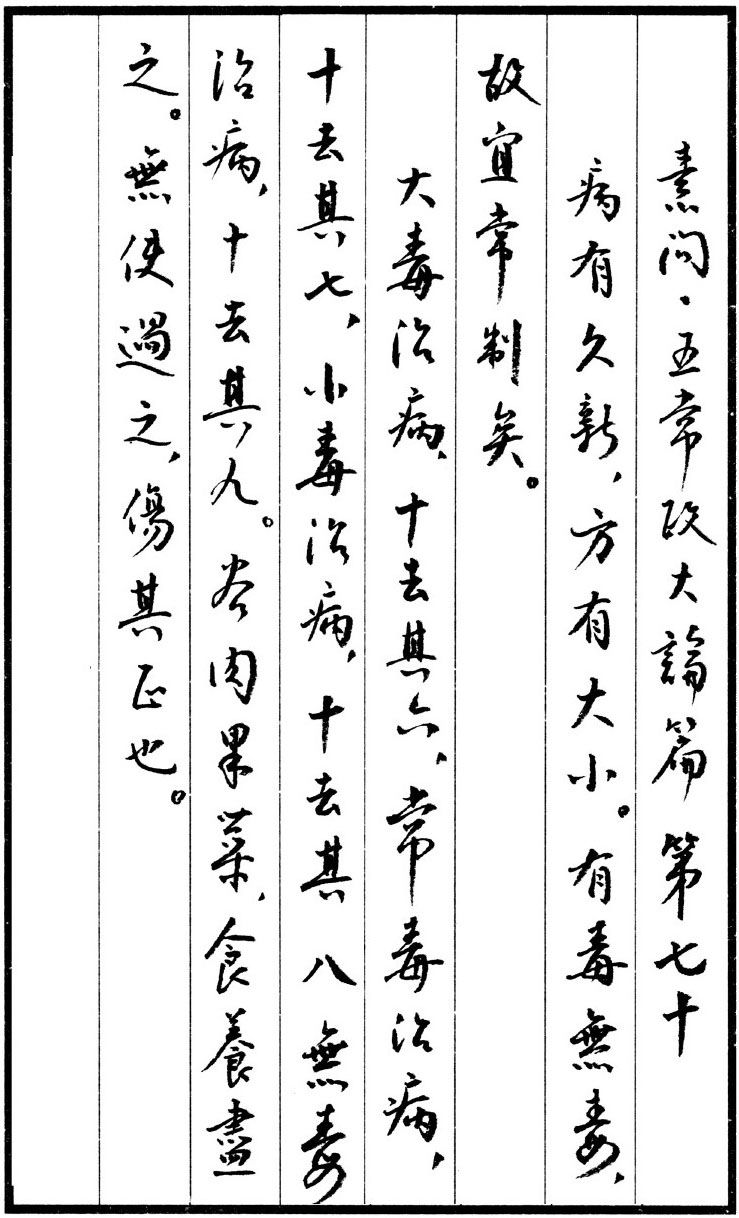 素問·五常政大論篇第七十
病有久新，方有大小。有毒無毒，
故宜常制矣。
大毒治病，十去其六，常毒治病，
十去其七，小毒治病，十去其八無毒
治病，十去其九。谷肉果菜，食養盡
之。無使過之，傷其正也。